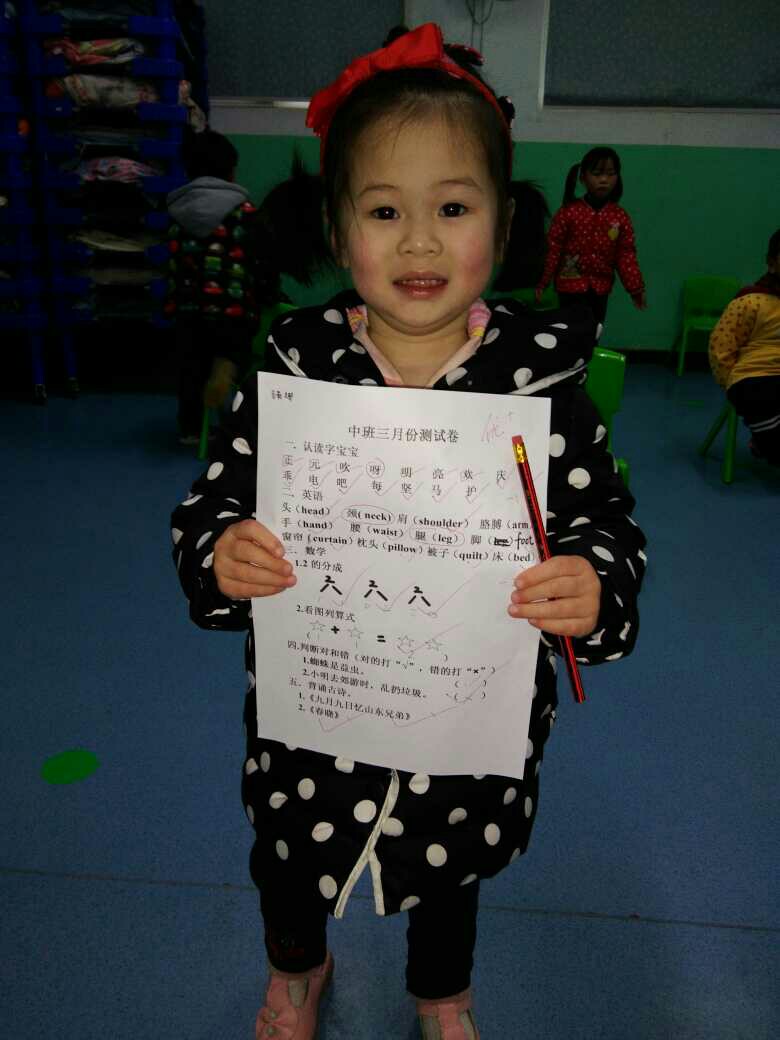 中班三月份测试卷
优+
一．认读字宝宝
正 元 吹 呀 明 亮 欢 庆
乖 电 吧 每 坚 马 护
二．英语
头（head） 颈（neck）肩（shoulder） 胳膊（arm
手（hand） 腰（waist）腿（leg） 脚（ foot
窗帘（curtain）枕头（pillow）被子（quilt）床（bed）
三．数学
1.2 的分成
2 2 2
2.看图列算式
+ =
（ ）
四.判断对和错（对的打“√”，错的打“×”）
1.蜘蛛是益虫。 （ ）
2.小明去郊游时，乱扔垃圾。 （ ）
五．背诵古诗。
1.《九月九日忆山东兄弟》
2.《春晓》